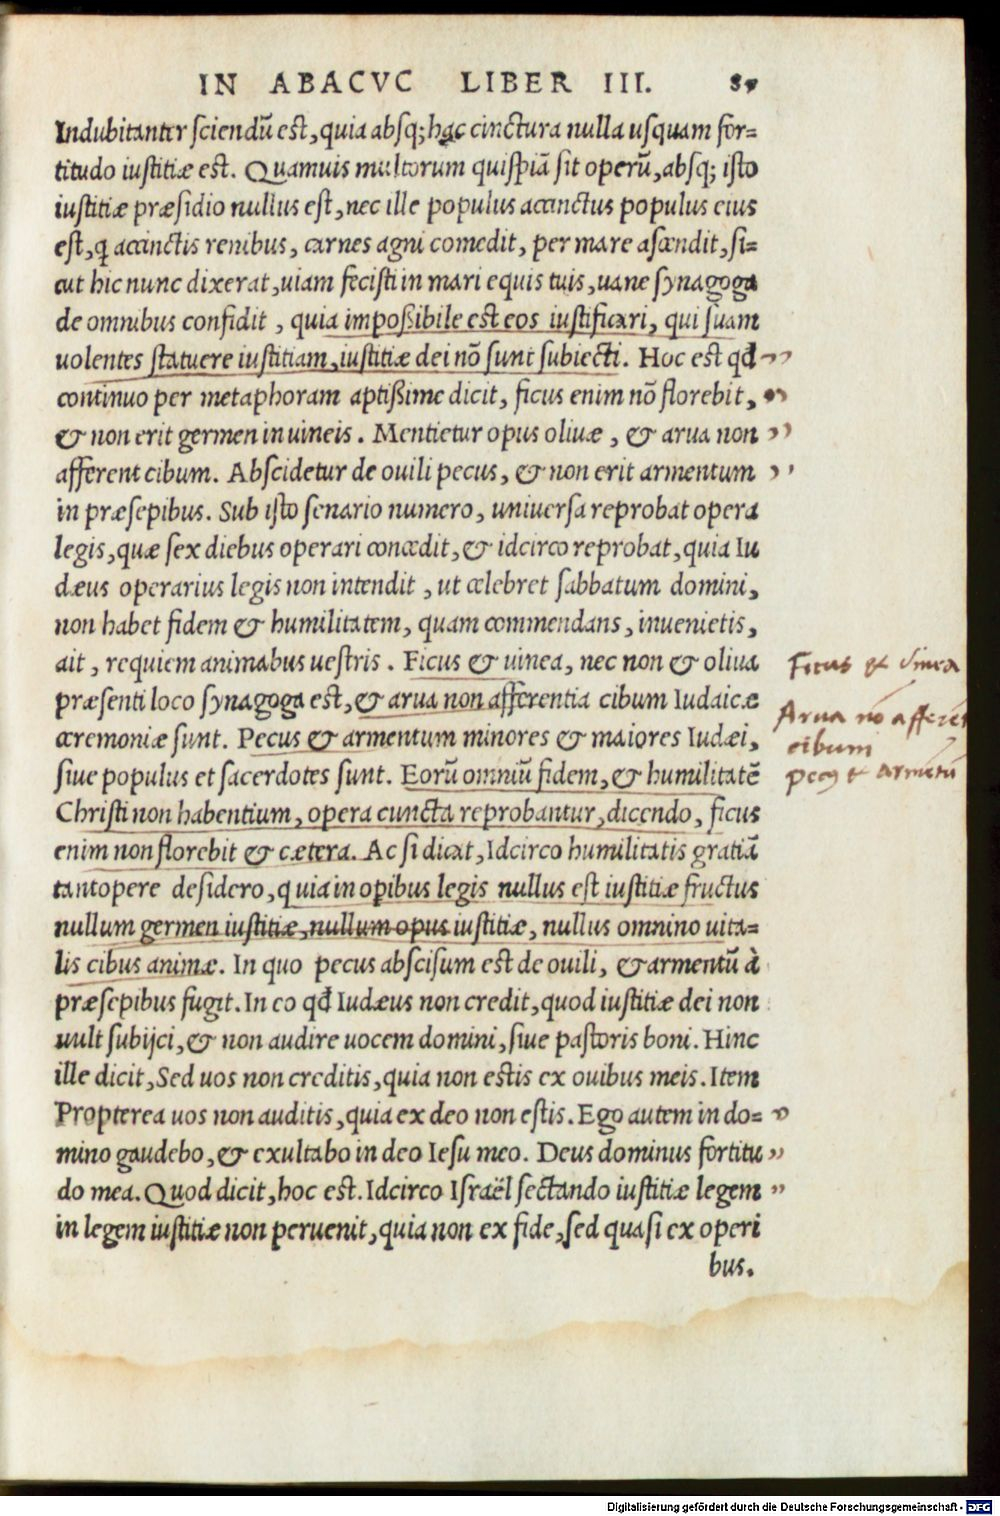 IN ABACVC LIBER III.
Indubitanter sciendũ est, quia absq; hac cinctura nulla usquam for=
titudo iustitiæ est. Quamuis multorum quispiã sit operũ, absq; isto
iustitiæ præsidio nullus est, nec ille populus accinctus populus eius
est, ꝗ accinctis renibus, carnes agni comedit, per mare ascendit, si=
cut hic nunc dixerat, uiam fecisti in mari equis tuis, uane synagoga
de omnibus confidit, quia impoßibile est eos iustificari, qui suam
uolentes statuere iustitiam, iustitiæ dei nõ sunt subiecti. Hoc est qđ ,,
continuo per metaphoram aptißime dicit, ficus enim nõ florebit, ,,
& non erit germen in uineis. Mentietur opus oliuæ, & arua non ,,
afferent cibum. Abscidetur de ouili pecus, & non erit armentum ,,
in præsepibus. Sub isto senario numero, uniuersa reprobat opera
legis, quæ sex diebus operari concedit, & idcirco reprobat, quia Iu
dæus operarius legis non intendit, ut celebret sabbatum domini,
non habet fidem & humilitatem, quam commendans, inuenietis,
ait, requiem animabus uestris. Ficus & uinea, nec non & oliua
præsenti loco synagoga est, & arua non afferentia cibum Iudaicæ
cæremoniæ sunt. Pecus & armentum minores & maiores Iudæi,
siue populus et sacerdotes sunt. Eorũ omniũ fidem, & humilitatẽ
Christi non habentium, opera cuncta reprobantur, dicendo, ficus
enim non florebit & cætera. Ac si dicat, Idcirco humilitatis gratiã
tantopere desidero, quia in opibus legis nullus est iustitiæ fructus
nullum germen iustitiæ, nullum opus iustitiæ, nullus omnino uita=
lis cibus animæ. In quo pecus abscisum est de ouili, & armentũ à
præsepibus fugit. In eo qđ Iudæus non credit, quod iustitiæ dei non
uult subijci, & non audire uocem domini, siue pastoris boni. Hinc
ille dicit, Sed uos non creditis, quia non estis ex ouibus meis. Item
Propterea uos non auditis, quia ex deo non estis. Ego autem in do= ,,
mino gaudebo, & exultabo in deo Iesu meo. Deus dominus fortitu ,,
do mea. Quod dicit, hoc est. Idcirco Israël sectando iustitiæ legem ,,
in legem iustitiæ non peruenit, quia non ex fide, sed quasi ex operi
bus.
Ficus & vinea
Arua nõ afferẽt
cibum
pecꝰ & Armẽtũ
Digitalisierung gefördert durch die Deutsche Forschungsgemeinschaft - DFG